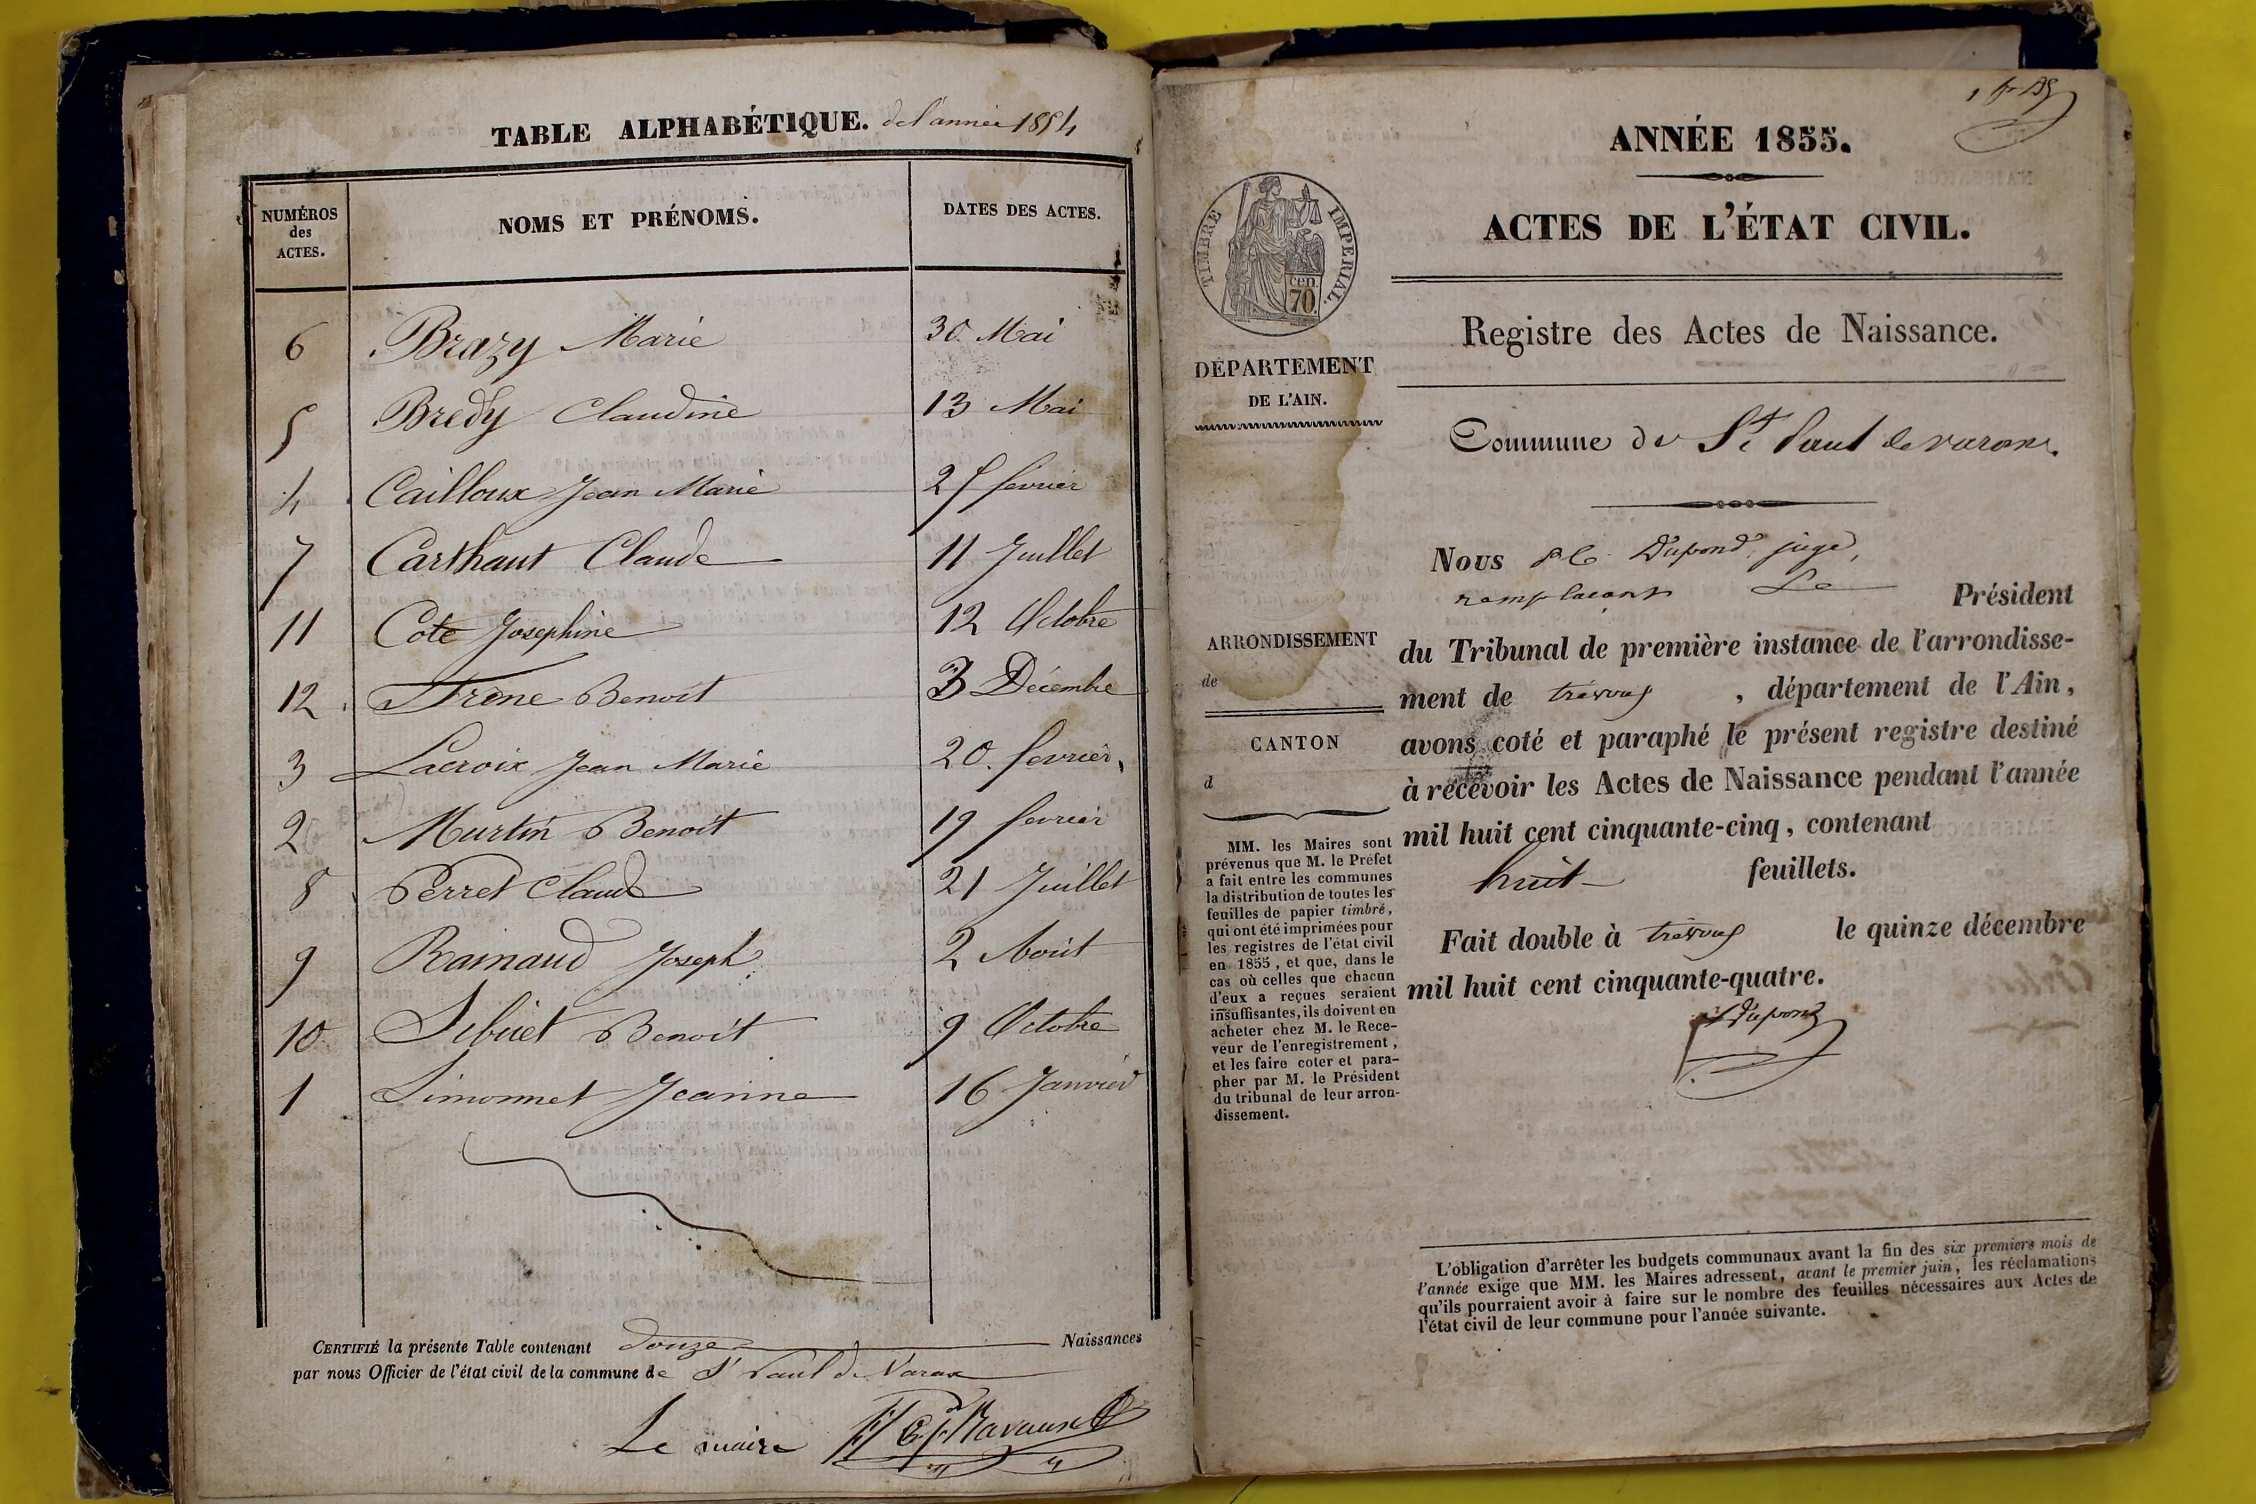 TABLE ALPHABÉTIQUE. de l'année 1854
NUMÉROS des ACTES. NOMS ET PRÉNOMS. DATES DES ACTES.
6 Brazy Marie 30 Mai
5 Bredy Claudine 13 Mai
4 Cailloux Jean Marie 25 fevrier
7 Carthaut Claude 11 Juillet
11 Cote Josephine 12 Octobre
12 Frene Benoit 3 Décembre
3 Lacroix Jean Marie 20. fevrier
2 Murtin Benoit 19 fevrier
8 Perret Claude 21 Juillet
9 Rainaud Joseph 2 Août
10 Sibuet Benoit 9 Octobre
1 Simonnet Jeanne 16 Janvier
CERTIFIÉ la présente Table contenant douze Naissances
par nous Officier de l'état civil de la commune de St Paul de Varax
Le maire
ANNÉE 1855.
ACTES DE L'ÉTAT CIVIL.
Registre des Actes de Naissance.
TIMBRE IMPERIAL.
cen.
70.
DÉPARTEMENT
DE L'AIN.
ARRONDISSEMENT
de
CANTON
d
MM. les Maires sont
prévenus que M. le Préfet
a fait entre les communes
la distribution de toutes les
feuilles de papier timbré,
qui ont été imprimées pour
les registres de l'état civil
en 1855, et que, dans le
cas où celles que chacun
d'eux a reçues seraient
insuffisantes, ils doivent en
acheter chez M. le Rece-
veur de l'enregistrement,
et les faire coter et para-
pher par M. le Président
du tribunal de leur arron-
dissement.
Commune de St Paul de varax.
Nous Dupond juge,
remplaçant Le Président
du Tribunal de première instance de l'arrondisse-
ment de trévoux, département de l'Ain,
avons coté et paraphé le présent registre destiné
à recevoir les Actes de Naissance pendant l'année
mil huit cent cinquante-cinq, contenant
huit feuillets.
Fait double à trévoux le quinze décembre
mil huit cent cinquante-quatre.
Dupond
L'obligation d'arrêter les budgets communaux avant la fin des six premiers mois de
l'année exige que MM. les Maires adressent, avant le premier juin, les réclamations
qu'ils pourraient avoir à faire sur le nombre des feuilles nécessaires aux Actes de
l'état civil de leur commune pour l'année suivante.